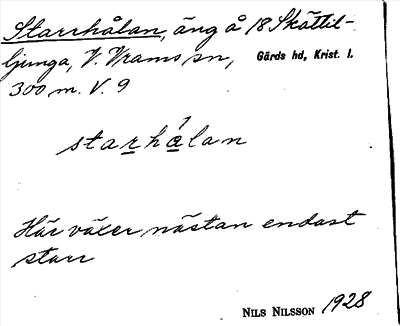 Starrhålan, äng å 18 Skättil-
ljunga, V. Vrams sn, Gärds hd, Krist. l.
300 m. V. 9
starhålan
Här växer nästan endast
starr
NILS NILSSON 1928